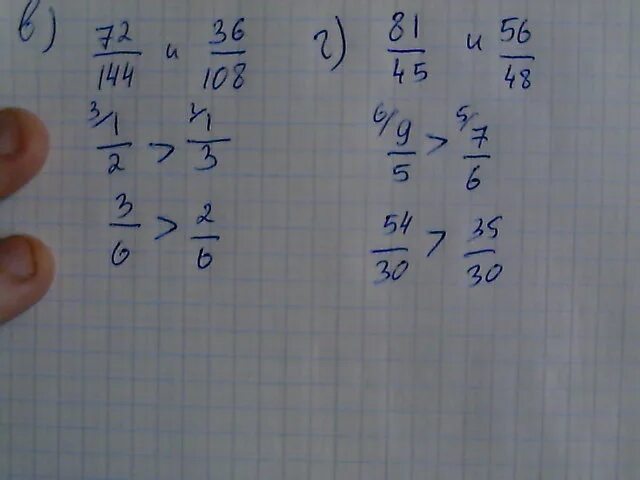 в) 72/144 и 36/108
3/ 1/2 > 2/ 1/3
3/6 > 2/6
г) 81/45 и 56/48
6/ 9/5 > 5/ 7/6
54/30 > 35/30